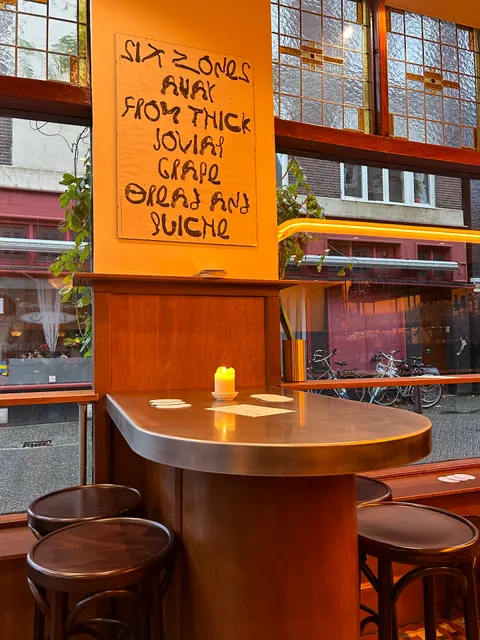 SIX ZONES
AWAY
FROM THICK
JOVIAL
GRAPE
BREAD AND
QUICHE